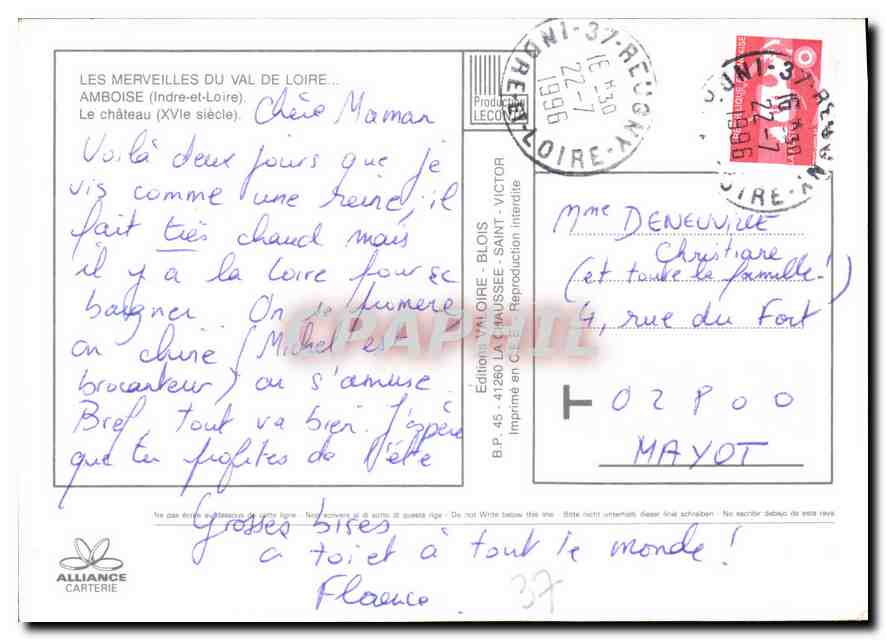 LES MERVEILLES DU VAL DE LOIRE...
AMBOISE (Indre-et-Loire).
Le château (XVIe siècle).
Chère Maman
Voilà deux jours que je
vis comme une reine, il
fait très chaud mais
il y a la Loire pour se
baigner. On se promène
on chine (Michel est
brocanteur) on s'amuse.
Bref, tout va bien. J'espère
que tu profites de l'été
Grosses bises
à toi et à tout le monde !
Florence.
37
ALLIANCE
CARTERIE
Ne pas écrire au-dessous de cette ligne - Non scrivere al di sotto di questa riga - Do not Write below this line - Bitte nicht unterhalb dieser linie schreiben - No escribir debajo de esta raya
Production
LECONTE
Editions VALOIRE - BLOIS
B.P. 45 - 41260 LA CHAUSSEE - SAINT - VICTOR
Imprimé en C.E.E. Reproduction interdite
CPAPHIL
37-REUGNY
16 H 30
22-7
1996
INDRE-ET-LOIRE
37-REUGNY
16 H 30
22-7
1996
Mme DENEUVILLE
Christiane
(et toute la famille !)
4, rue du Fort
T 02800
MAYOT